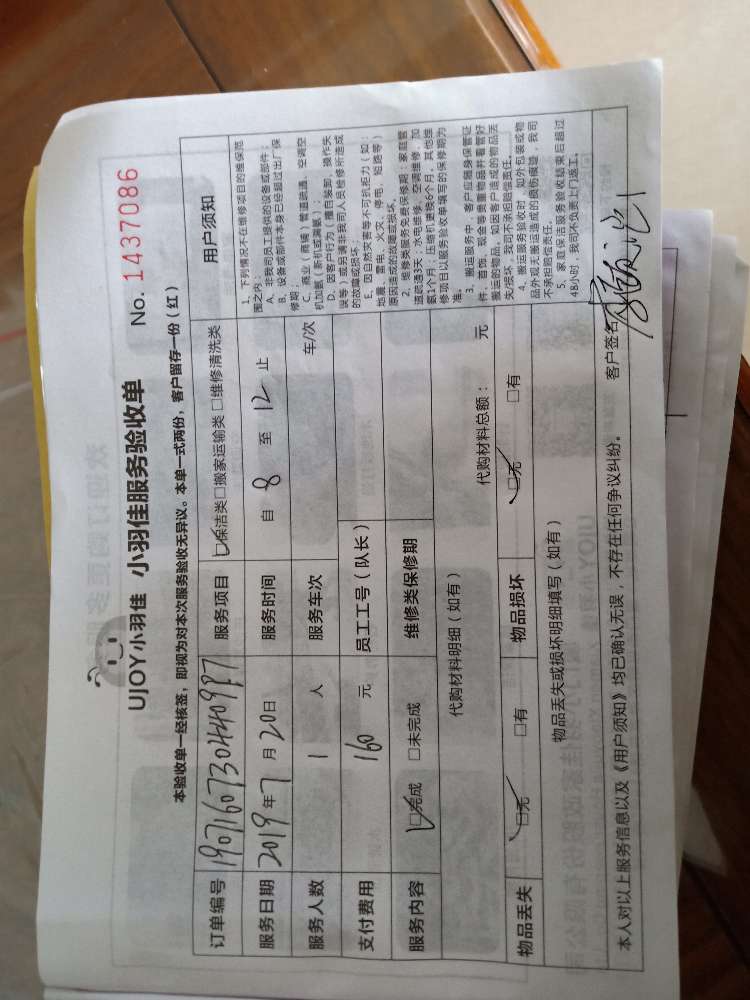 UJOY小羽佳 小羽佳服务验收单 No. 1437086
本验收单一经核签，即视为对本次服务验收无异议。本单一式两份，客户留存一份（红）
订单编号 服务项目 ☑保洁类□搬家运输类 □维修清洗类 用户须知
服务日期 2019年7月20日 服务时间 自 8 至 12 止
服务人数 1 人 服务车次 车/次
支付费用 160 元 员工工号（队长）
服务内容 ☑完成 □未完成 维修类保修期
代购材料明细（如有） 代购材料总额： 元
物品丢失 ☑无 □有 物品损坏 ☑无 □有
物品丢失或损坏明细填写（如有）
1、下列情况不在维修项目的维保范
围之内：
A、非我司员工提供的设备或部件；
B、设备或部件本身已经超过出厂保
修期；
C、商业（商铺）管道疏通、空调空
机加氨（新机或满氨）；
D、因客户行为（擅自装卸、操作失
误等）或另请非我司人员检修所造成
的故障或损坏；
E、因自然灾害等不可抗拒力（如：
地震、雷电、火灾、停电、短路等）
原因造成的故障或损坏。
2、维修类服务免费保修期：家庭管
道疏通3天，水电维修、空调维修、加
氨1个月，压缩机更换6个月，其他维
修项目以服务验收单填写的保修期为
准。
3、搬运服务中，客户应随身保管证
件、首饰、现金等贵重物品并看管好
搬运的物品，如因客户造成的物品丢
失/损坏，我司不承担赔偿责任。
4、搬运服务验收时，如外包装或物
品外观无搬运造成的损伤痕迹，我司
不承担赔偿责任。
5、家庭保洁服务验收结束后超过
48小时，我司不负责上门返工。
本人对以上服务信息以及《用户须知》均已确认无误，不存在任何争议纠纷。 客户签名